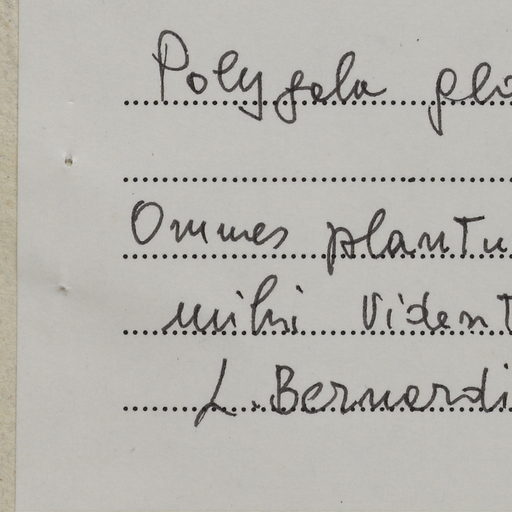 Polygala
Ommes plantu
mihi vident
L. Bernardi